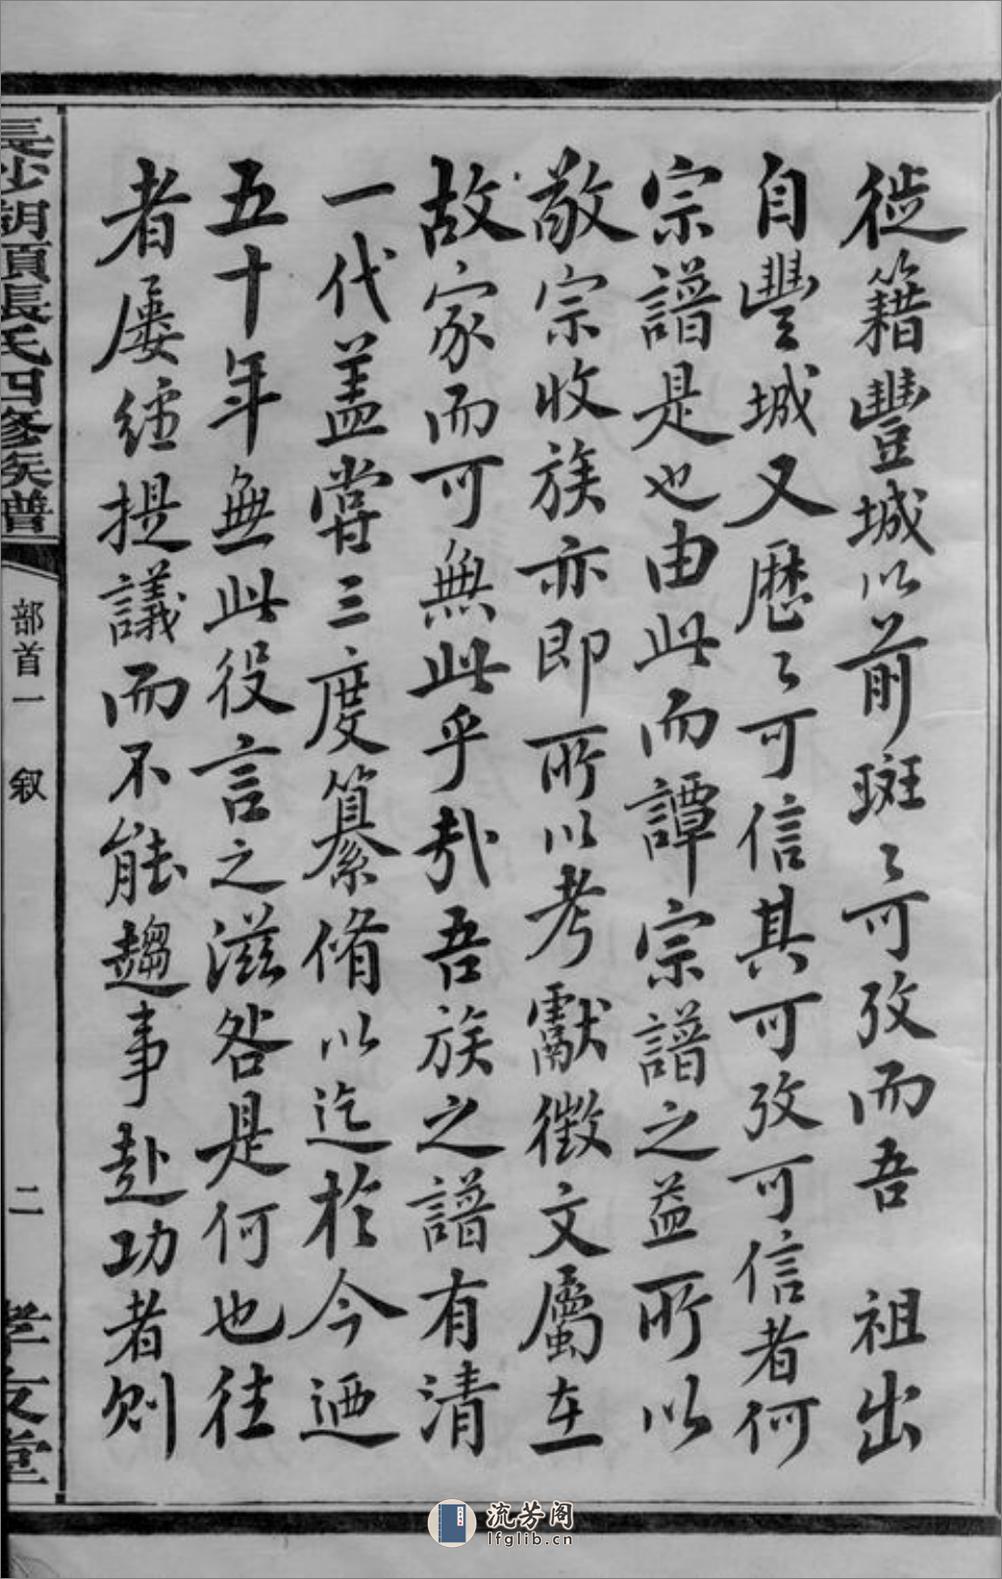 徙籍豐城以前斑〻可攷而吾　祖出
自豐城又歷〻可信其可攷可信者何
宗譜是也由此而譚宗譜之益所以
敬宗收族亦即所以考獻徵文屬在
故家而可無此乎哉吾族之譜有清
一代盖嘗三度纂脩以迄於今迺
五十年無此役言之滋咎是何也往
者屢經提議而不能趨事赴功者則
長沙胡項張氏四修族譜
部首一　叙
二
孝友堂
流芳阁
lfglib.cn